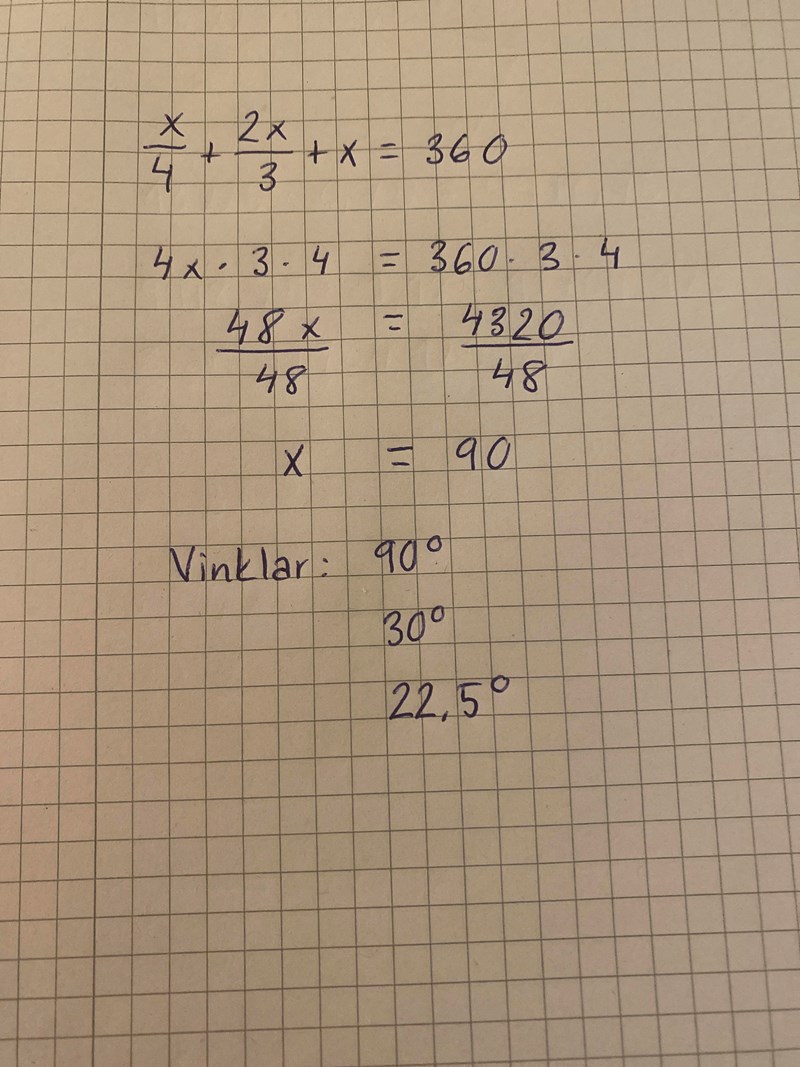 x/4 + 2x/3 + x = 360
4x · 3 · 4 = 360 · 3 · 4
48x/48 = 4320/48
x = 90
Vinklar: 90°
30°
22,5°